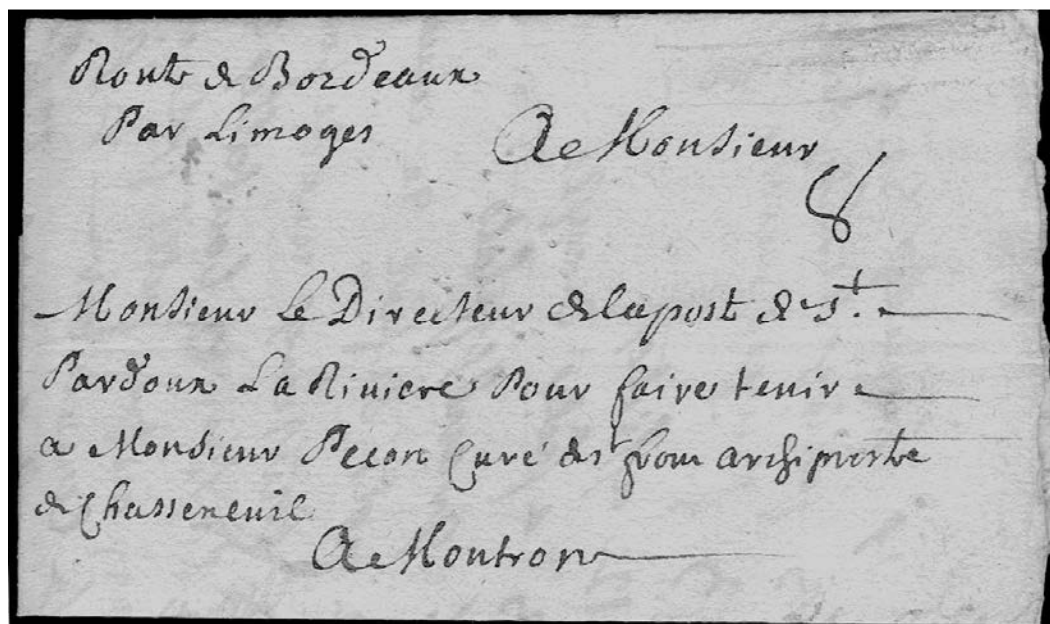 Route de Bordeaux
Par Limoges
A Monsieur
8
Monsieur Le Directeur de la post de St.
Pardoux La Riviere Pour faire tenir
a Monsieur Pecon Curé de st from archiprestre
de Chasseneuil
A Montron